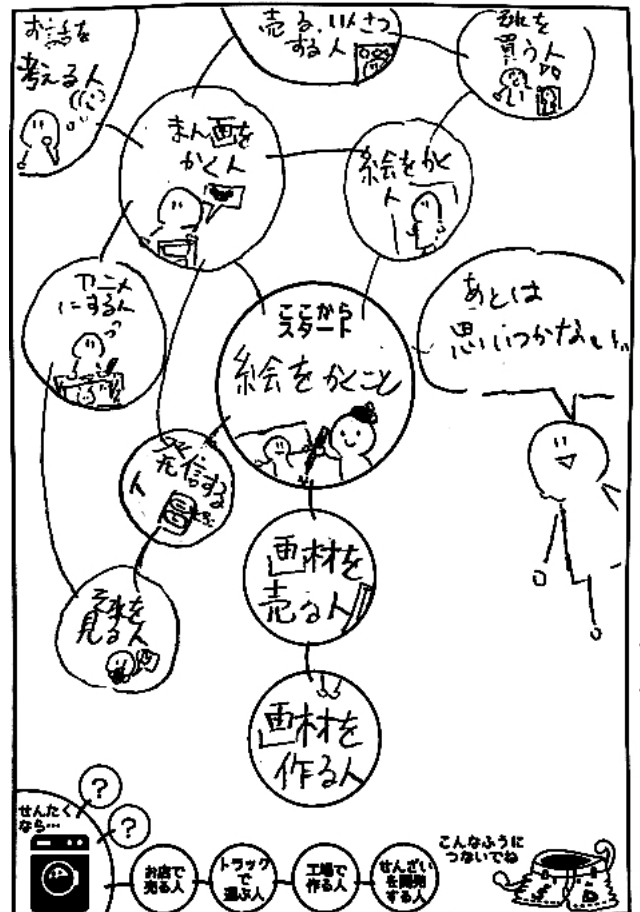 お話を
考える人
売る、いんさつ
する人
それを
買う人
まん画を
かく人
絵をかく
人
アニメ
にする人
ここから
スタート
絵をかくこと
あとは
思いつかない…
発信する
人
画材を
売る人
それを
見る人
画材を
作る人
せんたく
なら…
?
?
お店で
売る人
トラック
で
運ぶ人
工場で
作る人
せんざい
を開発
する人
こんなふうに
つないでね